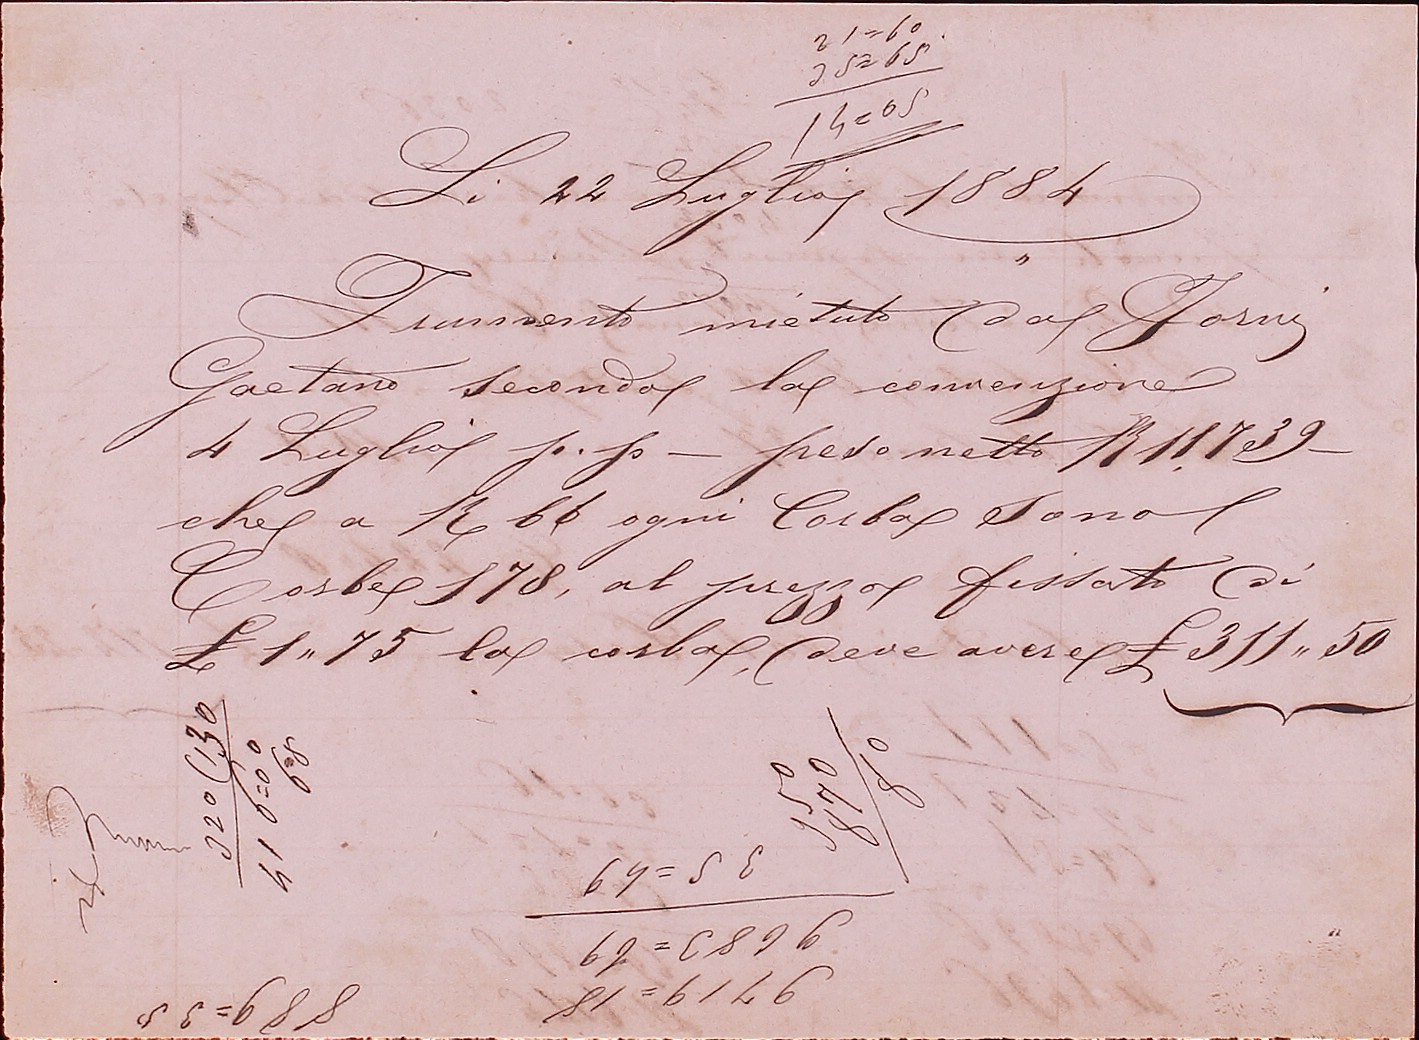 21=60
25=65
14=65
Li 22 Luglio 1884
"
Frumento mietuto da Forni
Gaetano secondo la convenzione
4 Luglio p.p – peso netto K 11,739 –
che a K 66 ogni Corba sono
Corbe 178, al prezzo fissato di
£ 1"75 la corba, deve avere £ 311"50
320 (130
68
950
870
80
35=49
9683=69
9719=18
889=35